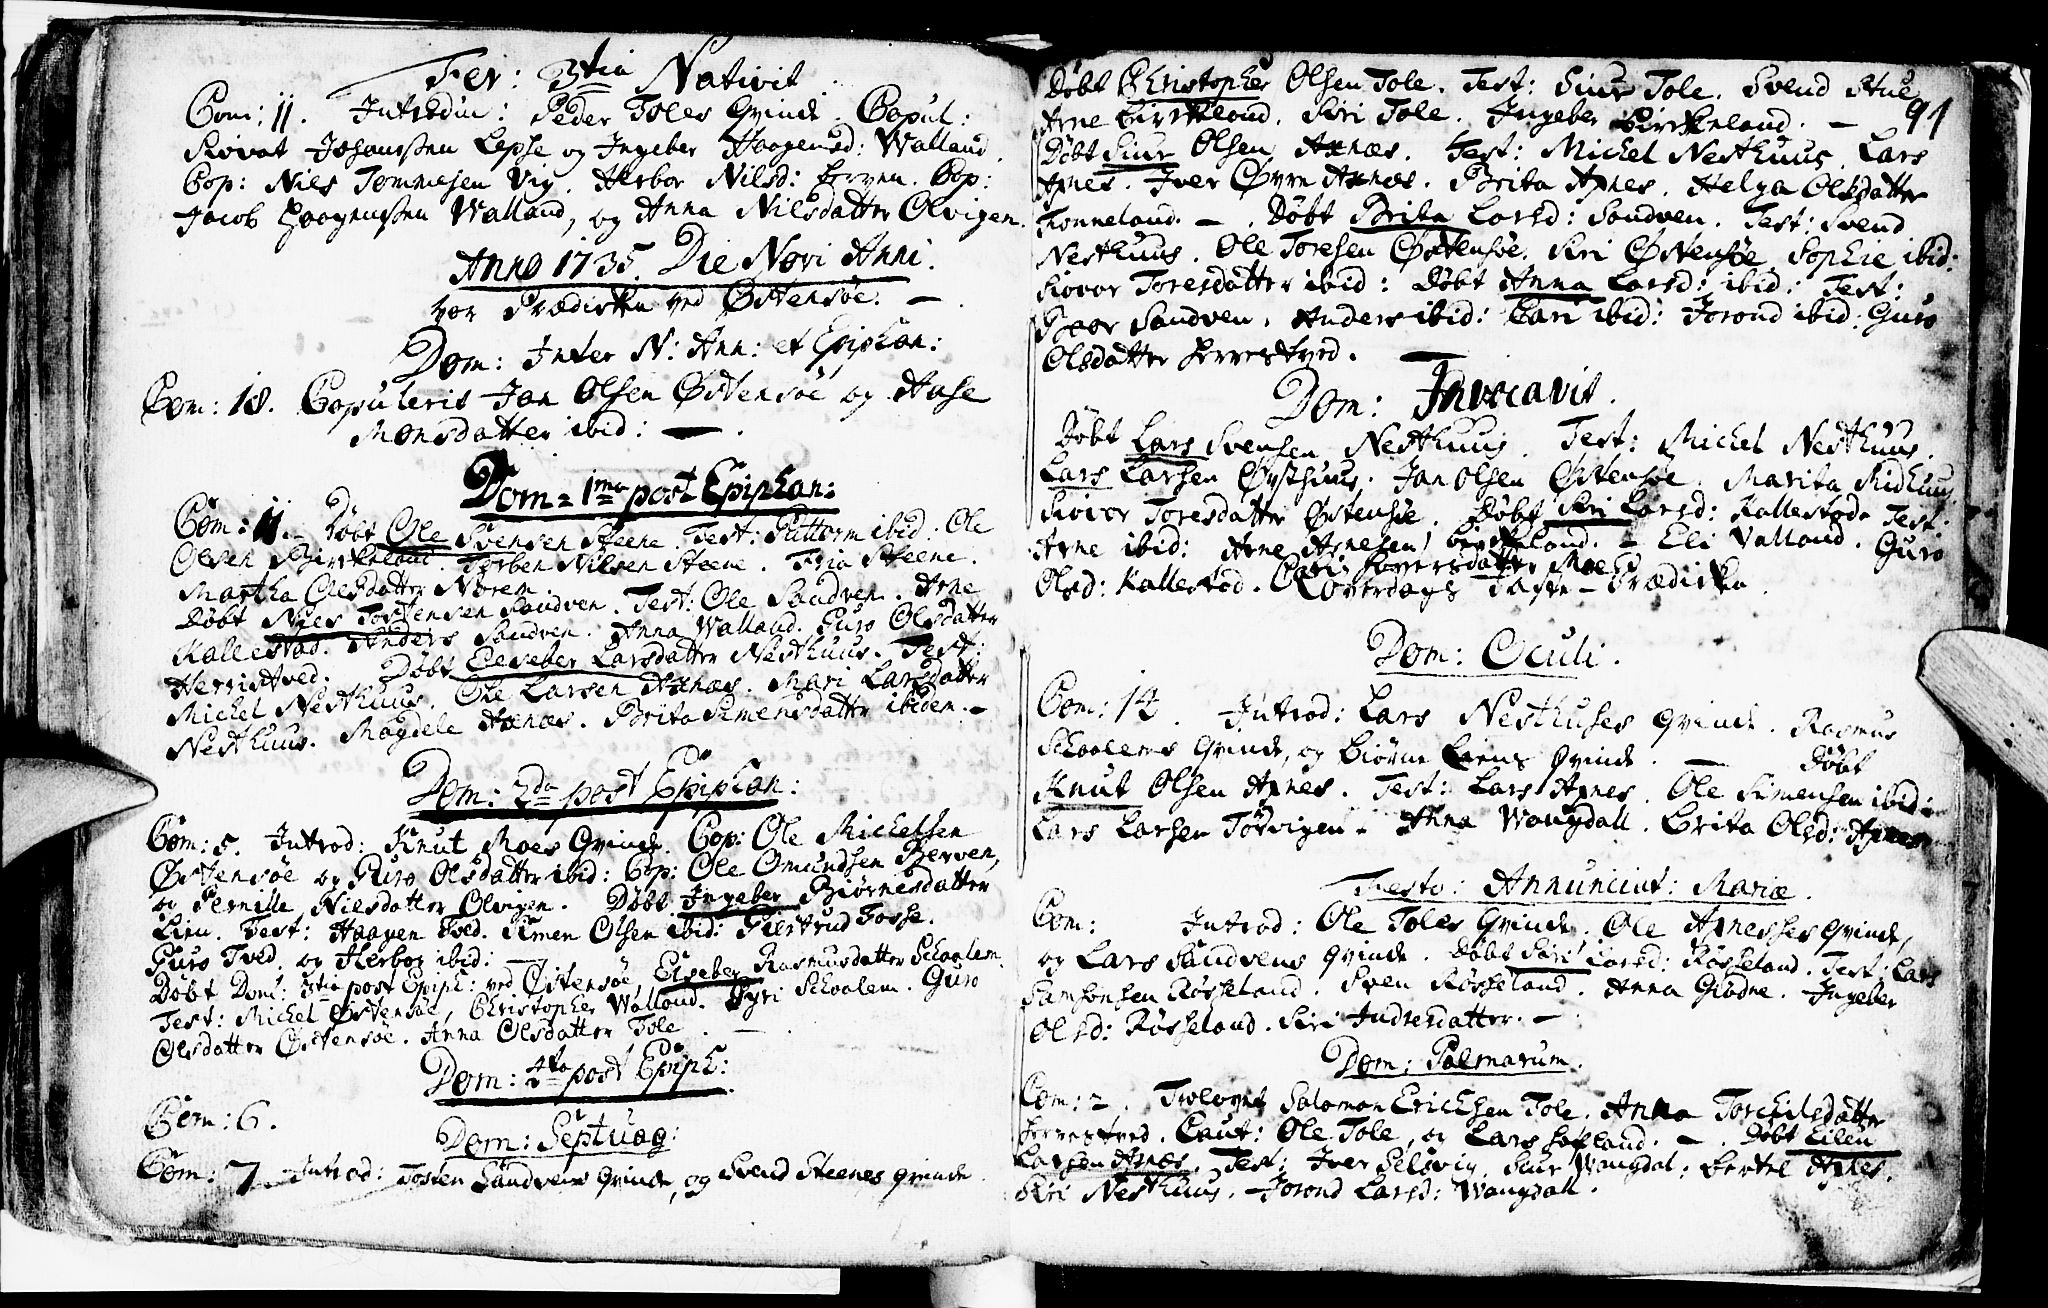 Fer: 3tia Nativit
Com: 11. Introdu: Peder Toles Qvinde. Copul:
Siovat Johanssen Lepse og Ingeber Haagensd: Walland
Cop: Niels Tommesen Vig. Herbor Nilsd: Berven. Cop:
Jacob Haagenssen Walland, og Anna Nilsdatter Olvigen.
Anno 1735. Die Novi Anni.
var Prædicken ved Østensøe. —
Dom: Inter N: Ann: et Epiphan:
Com: 18. Copuleris Jon Olsen Østensøe og Aase
Monsdatter ibid: —.
Dom: 1ma post Epiphan:
Com: 11. Døbt Ole Svensen Steene. Test: Guttorm ibid: Ole
Olsen Birckeland. Torben Nilsen Steene. Steene.
Martha Olsdatter Norem.
Døbt Nies Torstensen Sandven. Test: Ole Sandven. Arne
Kallestad. Anders Sandven. Anna Walland. Guro Olsdatter
Døbt Elseber Larsdatter Nesthuus. Test:
Michel Nesthuus. Ole Larsen Axnæs. Mari Larsdatter
Nesthuus. Magdele Axnæs. Brita Simensdatter ibidem. —
Dom: 2da post Epiphan:
Com: 5. Introd: Knut Moes Qvinde. Cop: Ole Michelsen
Østensøe og Guro Olsdatter ibid: Cop: Ole Omundsen Berven,
og Pernille Nielsdatter Olvigen. Døbt Ingeber Biørnesdatter
Lien. Test: Haagen Tved. Simen Olsen ibid: Giertrud Fosse.
Guro Tved, og Herbor ibid: —
Døbt Dom: 3tia post Epiph: ved Østensøe, Elseber Rasmusdatter Schaalem.
Test: Michel Østensøe, Christopher Walland. Syri Schaalem. Guro
Olsdatter Østensøe. Anna Olsdatter Tole. —
Dom: 4ta post Epiph:
Com: 6.
Dom: Septuag:
Com: 7. Introd: Tosten Sandvens Qvinde, og Svend Steenes qvinde.
91
Døbt Christopher Olsen Tole. Test: Siur Tole. Svend Stue
Arne Birckeland. Siri Tole. Ingeber Birckeland. —
Døbt Siur Olsen Axnæs. Test: Michel Nesthuus. Lars
Axnes. Iver Øvre Axnæs. Brita Axnes. Helga Olsdatter
Tonneland. —. Døbt Brita Larsd: Sandven. Test: Svend
Nesthuus. Ole Toresen Østensøe. Siri Østensøe Sophie ibid:
Siovor Toresdatter ibid: Døbt Anna Larsd: ibid: Test:
Sandven. Anders ibid: Cari ibid: Jorond ibid: Guro
Olsdatter Herrestved. —
Dom: Invocavit.
Døbt Lars Svensen Nesthuus. Test: Michel Nesthuus.
Lars Larsen Øysthuus. Jan Olsen Østensøe. Marita Midhuus
Siovor Toresdatter Østensøe. Døbt Siri Larsd: Kallestode Test:
Arne ibid: Arne Arnesen Birckeland. — Eli Valland. Guro
Olsd: Kallestod. Cari Siversdatter Moe.
Onsdags Faste-Prædicken.
Dom: Oculi.
Com: 14. Introd: Lars Nesthuses Qvinde. Rasmus
Schaalems Qvinde, og Biørne Liens Qvinde. — Døbt
Knut Olsen Axnes. Test: Lars Axnes. Ole Simensen ibid:
Lars Larsen Tørvigen. Anna Wangdall. Brita Olsd: Axnes
Festo: Annunciat: Mariæ.
Com: Introd: Ole Toles Qvinde. Ole Axnesses Qvinde,
og Lars Sandvens Qvinde. Døbt Siri Larsd: Røsseland. Test: Lars
Samsonsen Røsseland. Sven Røsseland. Anna Ingeber
Olsd: Røsseland. Siri Indresdatter. —
Dom: Palmarum.
Com: 2. Trolovet Salomon Erichsen Tole. Anna Torchilsdatter
Herrestved. Caut: Ole Tole, og Lars —. Døbt Eilen
Larsen Axnæs. Test: Iver Selsvig. Siur Wangdal. Bertel Axnes.
Siri Nesthuus. Jorond Larsd: Wangdall.